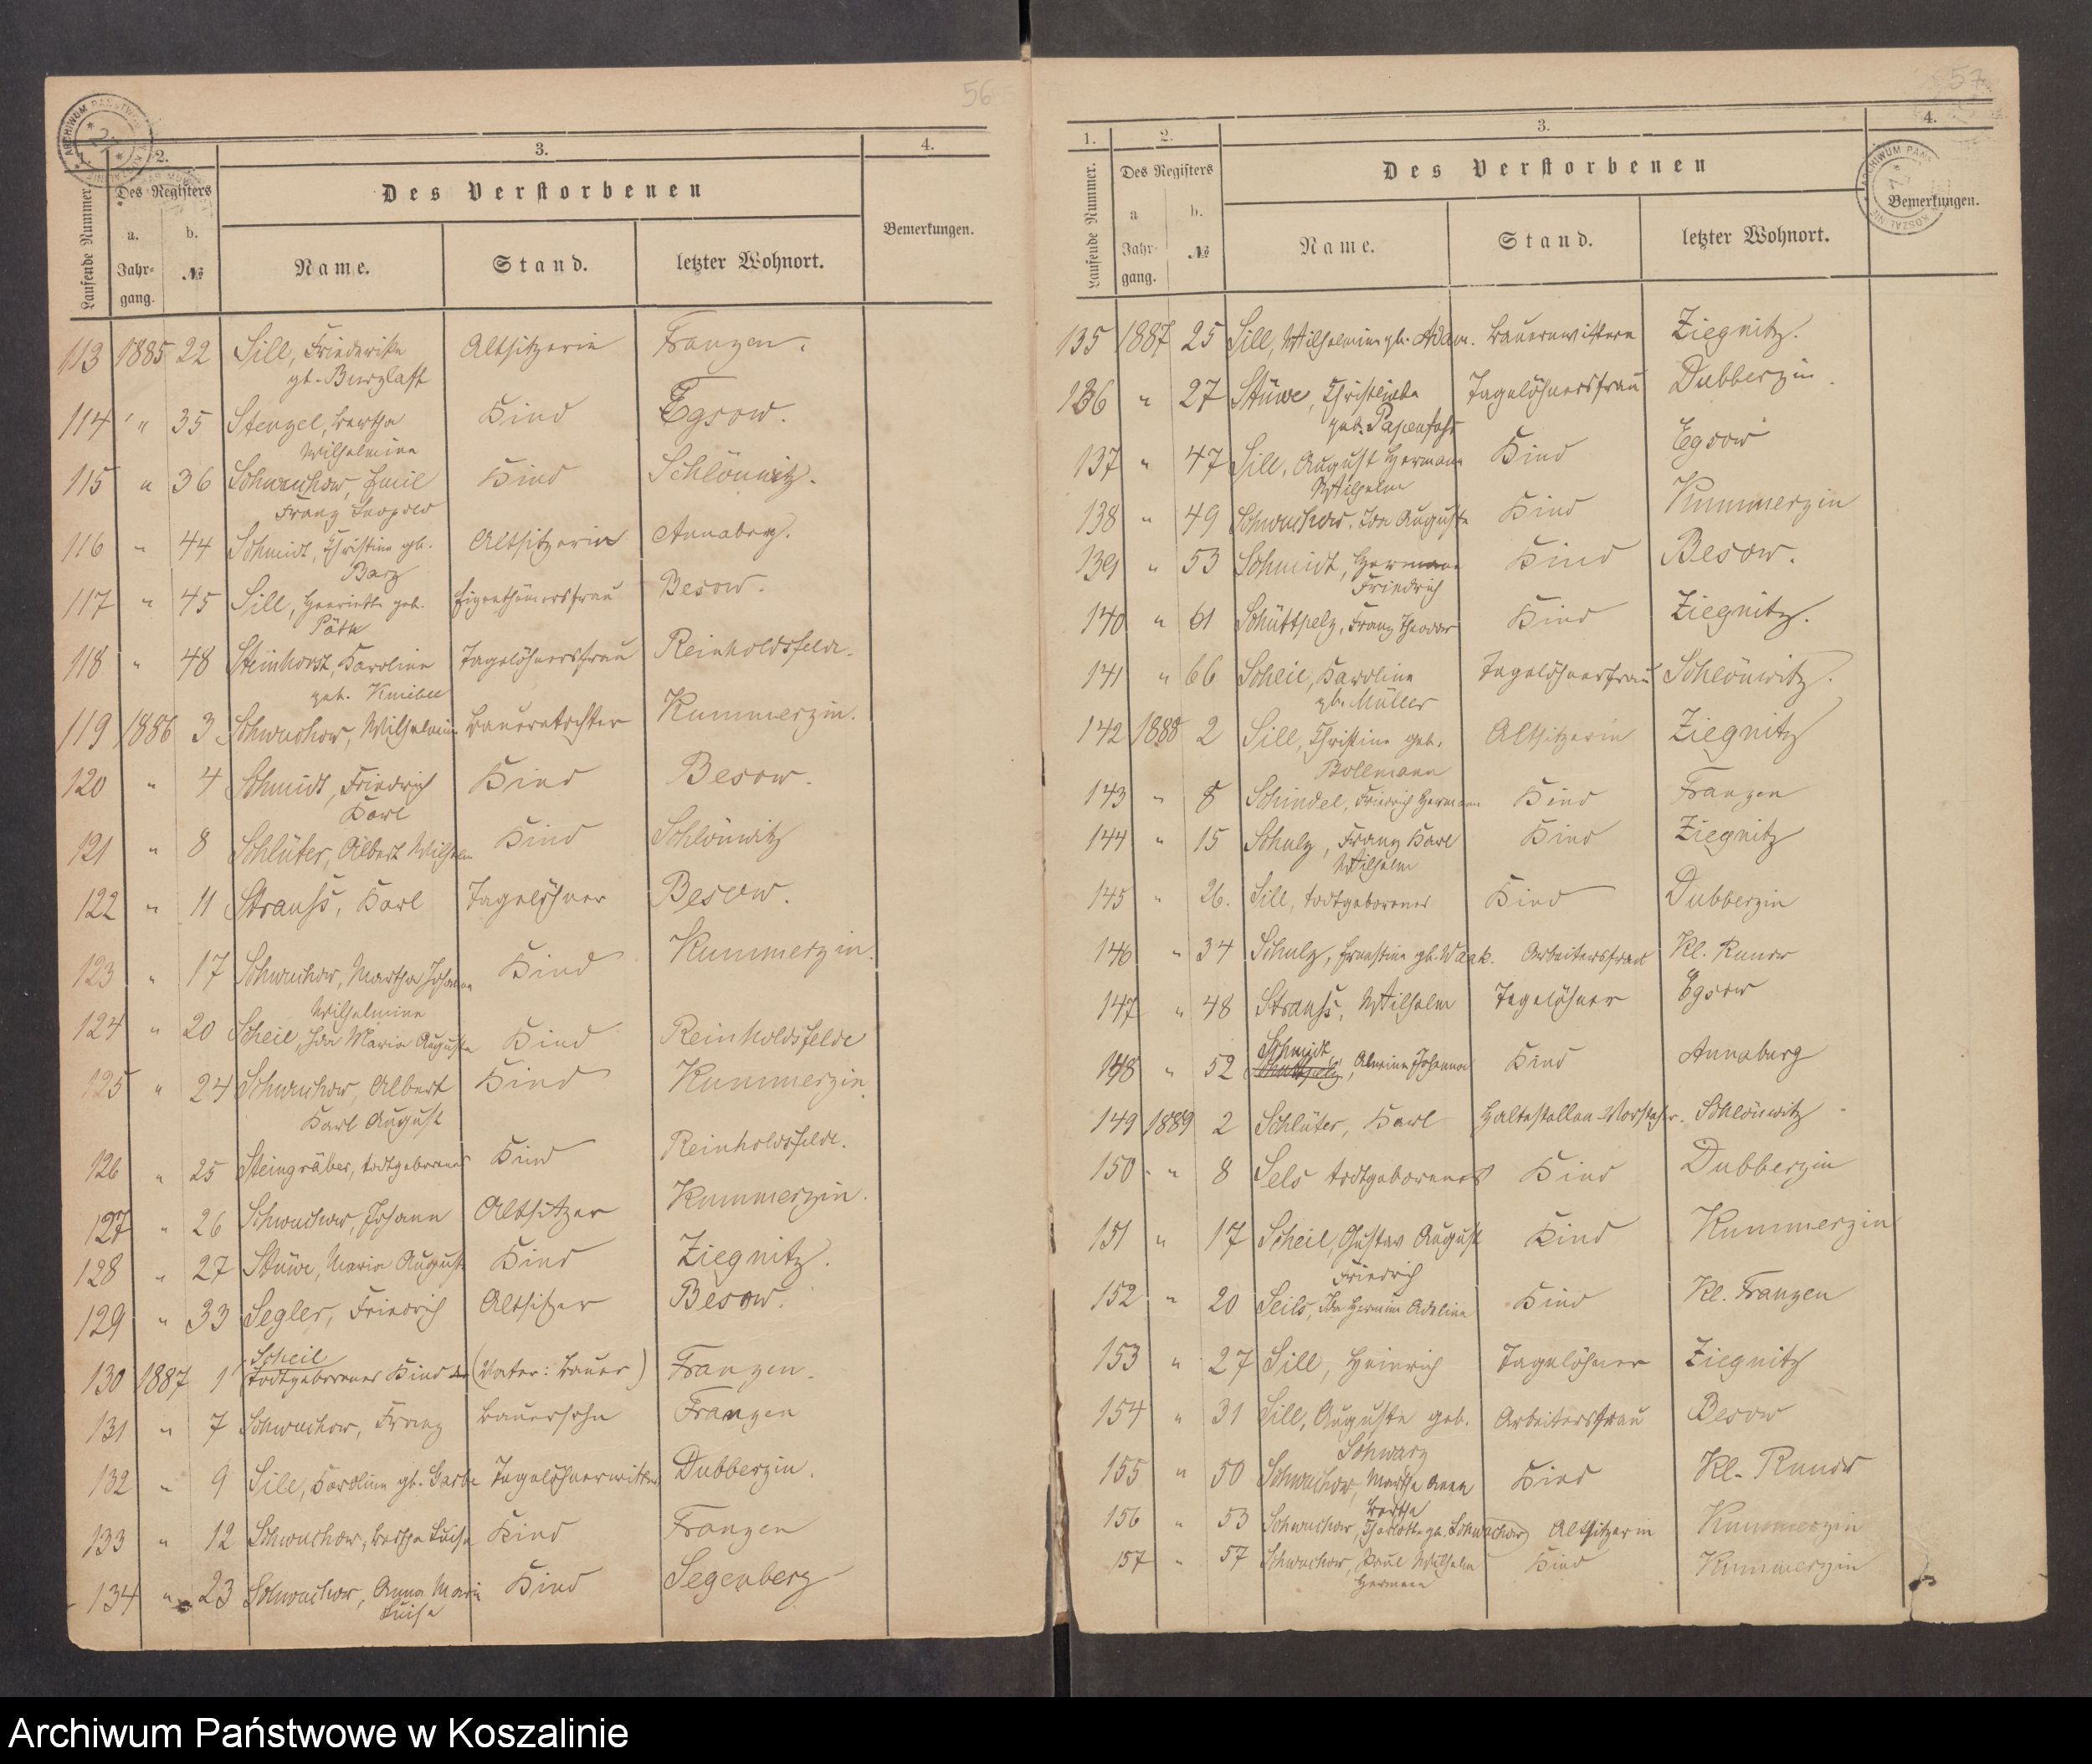 56
1. 2. 3. 4.
Laufende Nummer. Des Registers Des Verstorbenen Bemerkungen.
a. b.
Jahrgang. № Name. Stand. letzter Wohnort.
113 1885 22 Sill, Friederike Altsitzerin Franzen.
gb. Burzlaff
114 " 35 Stenzel, Bertha Kind Egsow.
Wilhelmine
115 " 36 Schwuchow, Emil Kind Schlönwitz.
Franz Leopold
116 " 44 Schmidt, Christine gb. Altsitzerin Annaberg.
Barz
117 " 45 Sill, Henriette geb. Eigenthümersfrau Besow.
118 " 48 Steinhorst, Karoline Tagelöhnersfrau Reinholdsfelde.
geb.
119 1886 3 Schwuchow, Wilhelmine Bauerntochter Kummerzin.
120 " 4 Schmidt, Friedrich Kind Besow.
Karl
121 " 8 Schlüter, Albert Wilhelm Kind Schlönwitz
122 " 11 Strauss, Karl Tagelöhner Besow.
123 " 17 Schwuchow, Martha Johanna Kind Kummerzin.
Wilhelmine
124 " 20 Scheil, Ida Maria Auguste Kind Reinholdsfelde
125 " 24 Schwuchow, Albert Kind Kummerzin
Karl August
126 " 25 Steingräber, todtgeborenes Kind Reinholdsfelde.
127 " 26 Schwuchow, Johann Altsitzer Kummerzin.
128 " 27 Stüwe, Maria Auguste Kind Ziegnitz.
129 " 33 Segler, Friedrich Altsitzer Besow.
Scheil
130 1887 1 todtgeborenes Kind des (Vater: Bauer) Franzen.
131 " 7 Schwuchow, Franz Bauersohn Franzen
132 " 9 Sill, Karoline gb. Garbe Tagelöhnerwittwe Dubberzin.
133 " 12 Schwuchow, Bertha Luise Kind Franzen
134 " 23 Schwuchow, Anna Marie Kind Segenberg
Luise
57
1. 2. 3. 4.
Laufende Nummer. Des Registers Des Verstorbenen Bemerkungen.
a b.
Jahrgang. № Name. Stand. letzter Wohnort.
135 1887 25 Sill, Wilhelmine gb. Adam. Bauernwittwe Ziegnitz.
136 " 27 Stüwe, Tagelöhnersfrau Dubberzin.
geb. Papenfuhs
137 " 47 Sill, August Hermann Kind Egsow
Wilhelm
138 " 49 Schwuchow, Ida Auguste Kind Kummerzin
139 " 53 Schmidt, Hermann Kind Besow.
Friedrich
140 " 61 Schüttpelz, Franz Theodor Kind Ziegnitz.
141 " 66 Scheil, Karoline Tagelöhnerfrau Schlönwitz.
gb. Müller
142 1888 2 Sill, Christine geb. Altsitzerin Ziegnitz
Bollmann
143 " 8 Schindel, Friedrich Hermann Kind Franzen
144 " 15 Schulz, Franz Karl Kind Ziegnitz
Wilhelm
145 " 26. Sill, todtgeborenes Kind Dubberzin
146 " 34 Schulz, Ernestine gb. Waak. Arbeitersfrau Kl. Runow
147 " 48 Strauss, Wilhelm Tagelöhner Egsow
Schmidt
148 " 52 Schüttpelz, Alwine Johanna Kind Annaburg
149 1889 2 Schlüter, Karl Haltestellen-Vorsteher. Schlönwitz
150 " 8 Sels todtgeborenes Kind Dubberzin
151 " 17 Scheil, Gustav August Kind Kummerzin
Friedrich
152 " 20 Seils, Ida Hermine Adeline Kind Kl. Franzen
153 " 27 Sill, Heinrich Tagelöhner Ziegnitz
154 " 31 Sill, Auguste geb. Arbeitersfrau Besow
Schwarz
155 " 50 Schwuchow, Martha Anna Kind Kl. Runow
Bertha
156 " 53 Schwuchow, Charlotte gb. Schwuchow Altsitzerin Kummerzin
157 " 57 Schwuchow, Paul Wilhelm Kind Kummerzin
Hermann
Archiwum Państwowe w Koszalinie